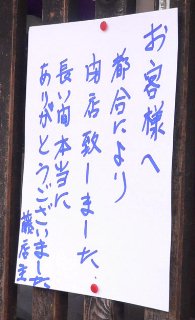 お客様へ
都合により
閉店致しました
長い間本当に
ありがとうございました
店主